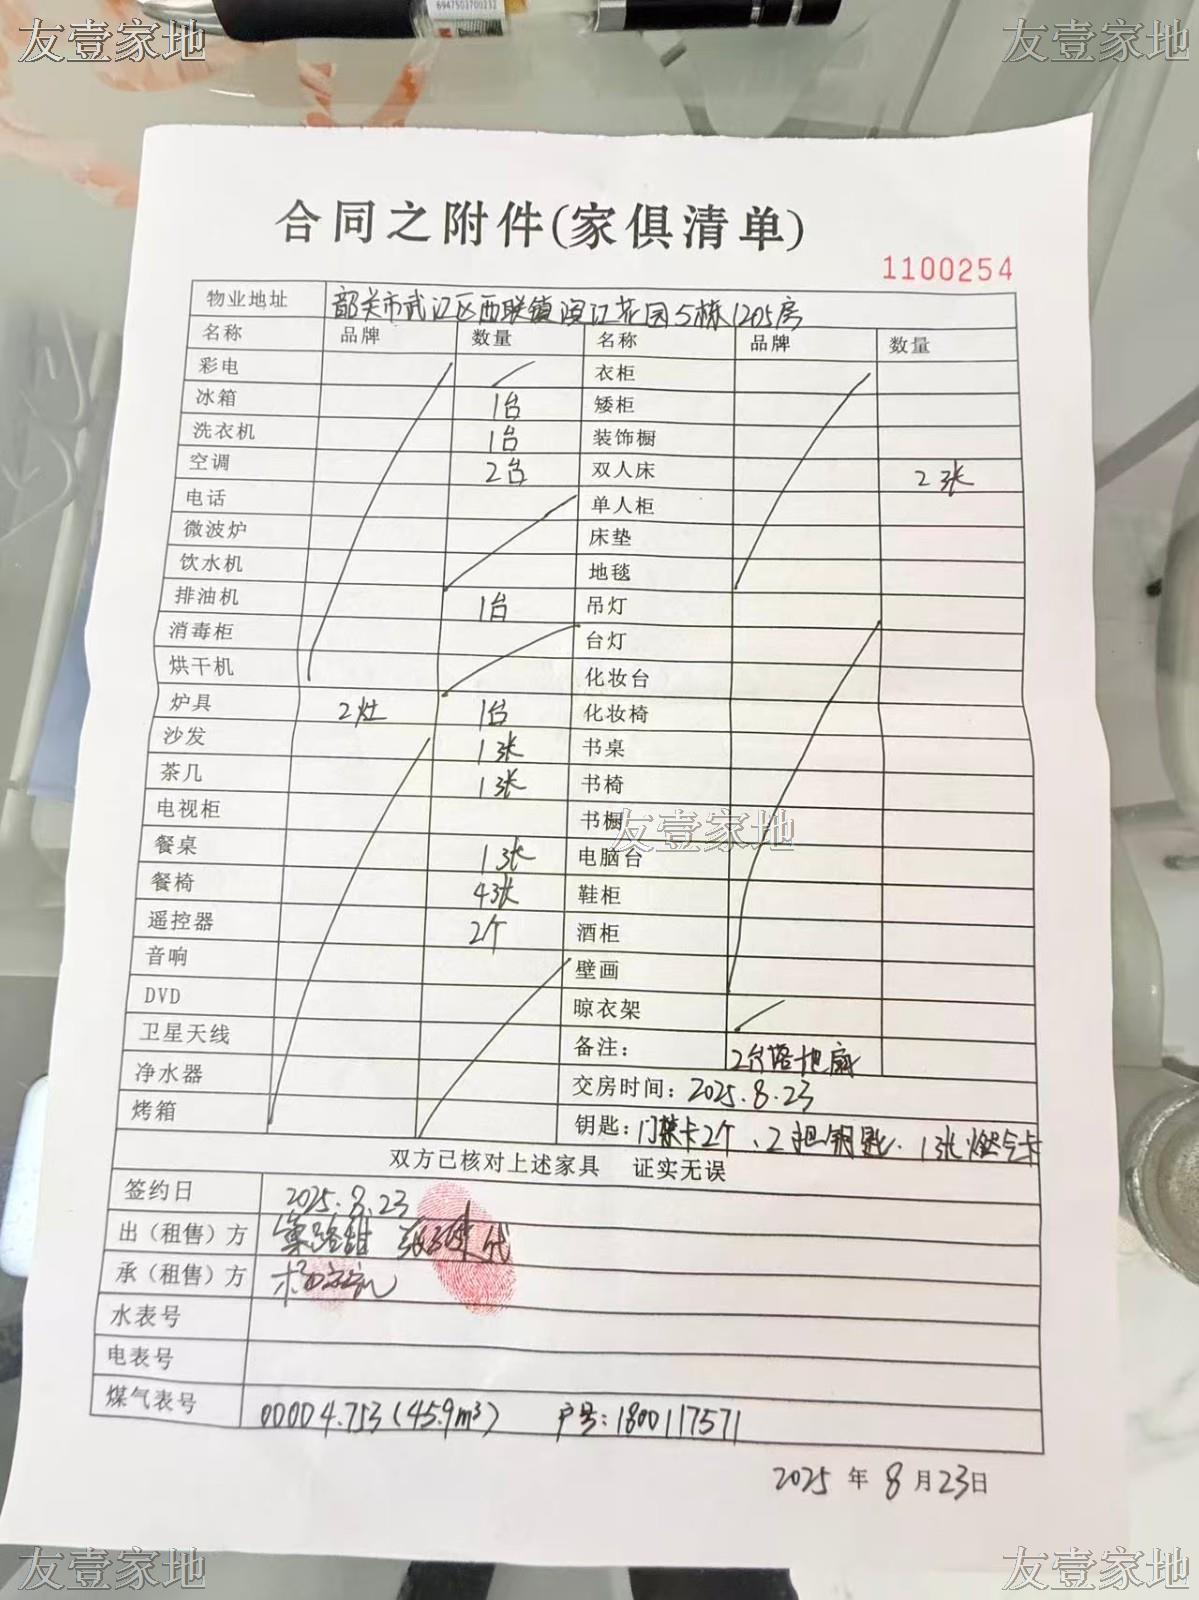 6947503700232
友壹家地 友壹家地
合同之附件(家俱清单)
1100254
物业地址 韶关市武江区西联镇滨江花园5栋1205房
名称 品牌 数量 名称 品牌 数量
彩电 衣柜
冰箱 1台 矮柜
洗衣机 1台 装饰橱
空调 2台 双人床 2张
电话 单人柜
微波炉 床垫
饮水机 地毯
排油机 1台 吊灯
消毒柜 台灯
烘干机 化妆台
炉具 2灶 1台 化妆椅
沙发 1张 书桌
茶几 1张 书椅
电视柜 书橱
友壹家地
餐桌 1张 电脑台
餐椅 4张 鞋柜
遥控器 2个 酒柜
音响 壁画
DVD 晾衣架
卫星天线 备注: 2台落地扇
净水器 交房时间: 2025.8.23
烤箱 钥匙: 门禁卡2个、2把钥匙.1张燃气卡
双方已核对上述家具 证实无误
签约日 2025.8.23
出（租售）方 代
承（租售）方
水表号
电表号
煤气表号 00004.753(45.9m³) 户号:1800117571
2025年8月23日
友壹家地 友壹家地